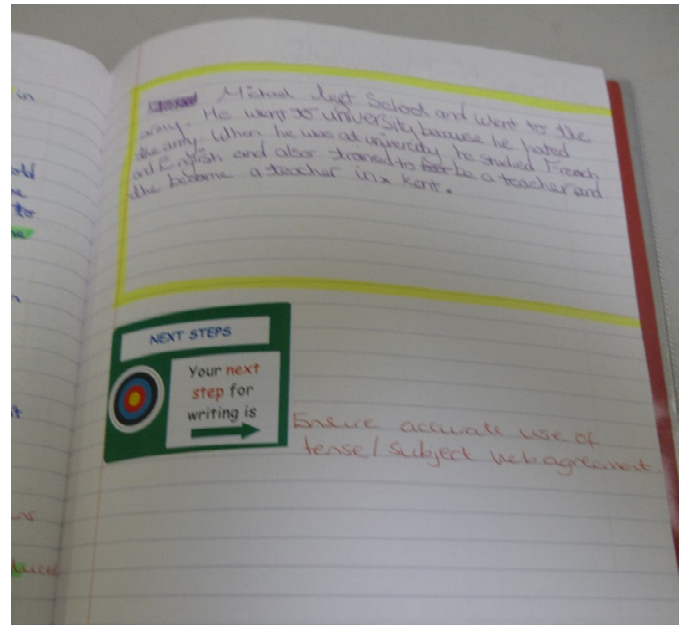 Michael left School and went to the
army. He went to university because he hated
the army. When he was at university he studied French
and English and also trained to be a teacher and
the became a teacher in Kent.
NEXT STEPS
Your next
step for
writing is
Ensure accurate use of
tense/subject verb agreement.